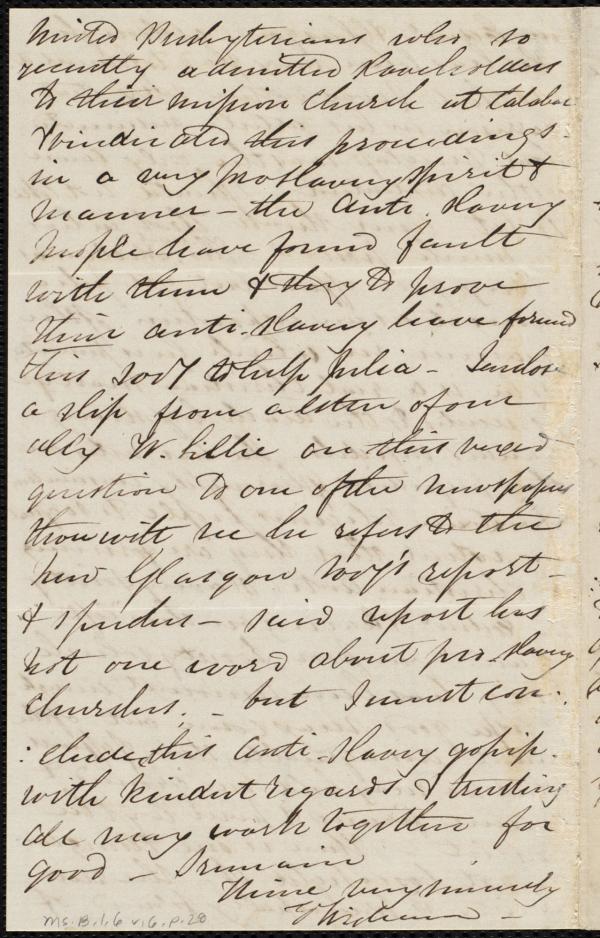 United Presbyterians who so
recently admitted slaveholders
to their mission church at Calabar
& vindicated this proceedings
in a very proslavery spirit &
manner - the anti-slavery
people have found fault
with them & they to prove
their anti-slavery have formed
this socy to help Julia - I enclose
a slip from a letter of our
ally W. Lillie on this vexed
question to one of the newspapers
thou wilt see he refers to the
new Glasgow socy's report -
& speeches - said report has
not one word about pro-slavery
churches. - but I must con-
:clude this anti-slavery gossip.
with kindest regards & trusting
all may work together for
good - I remain
Thine very sincerely
Ms. B. 1. 6 v. 6, p. 28